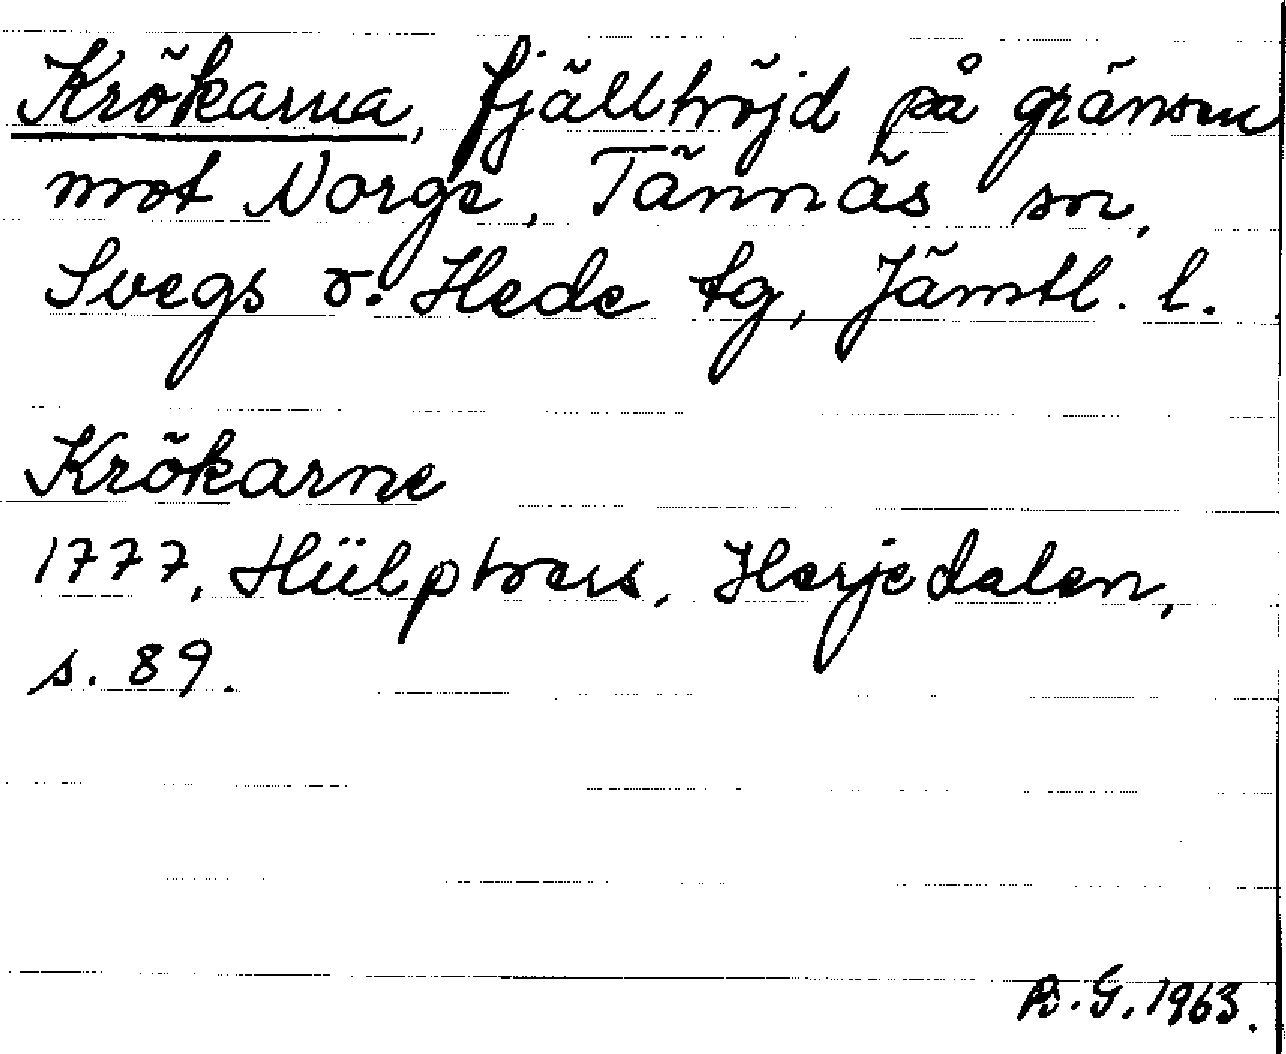 Krökarna, fjällhöjd på gränsen
mot Norge, Tännäs sn,
Svegs o. Hede tg, Jämtl. l.
Krökarne
1777, Hülphers, Herjedalen,
s. 89.
B. G. 1963.